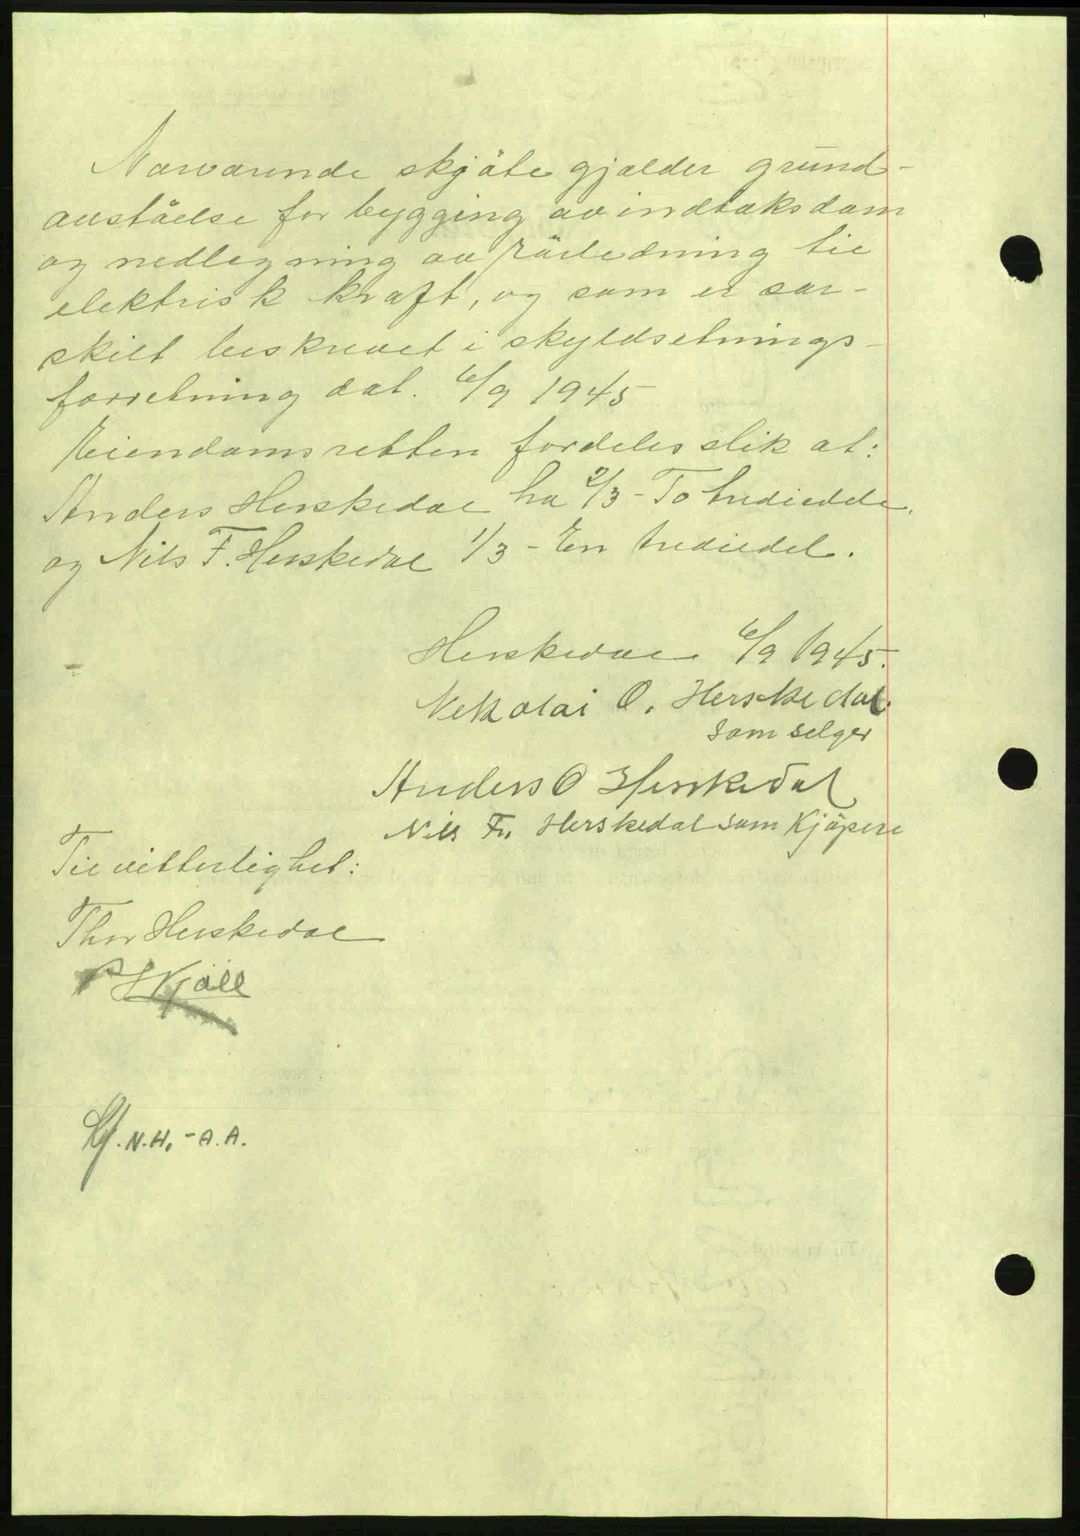 Nærværende skjöte gjelder grund-
avståelse for bygging av indtaksdam
og nedlegning av rörledning til
elektrisk kraft, og som er sær-
skilt beskrevet i skyldsetnings-
forretning dat. 6/9 1945
Eiendomsretten fordeles slik at:
Anders Herskedal ha 2/3 - To trediedele.
og Nils F. Herskedal 1/3 - En trediedel.
Herskedal 6/9 1945.
Nekolai O. Herskedal.
som selger
Anders O Herskedal
Nils Fr. Herskedal som Kjöpere
Til vitterlighet:
Thor Herskedal
Skjöll
N.H. - A.A.